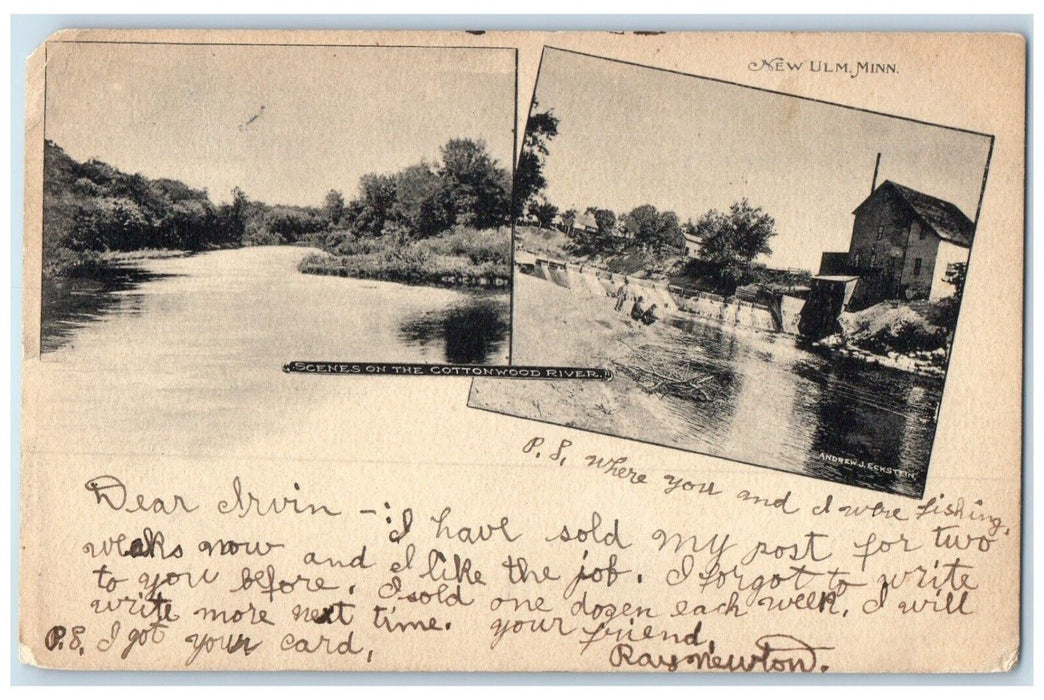 NEW ULM, MINN.
SCENES ON THE COTTONWOOD RIVER.
ANDREW J. ECKSTEIN
P.S. where you and I were fishing.
Dear Irvin - I have sold my post for two
weaks now and I like the job. I forgot to write
to you before. I sold one dozen each week. I will
write more next time. your friend,
P.S. I got your card, Ray Newton.